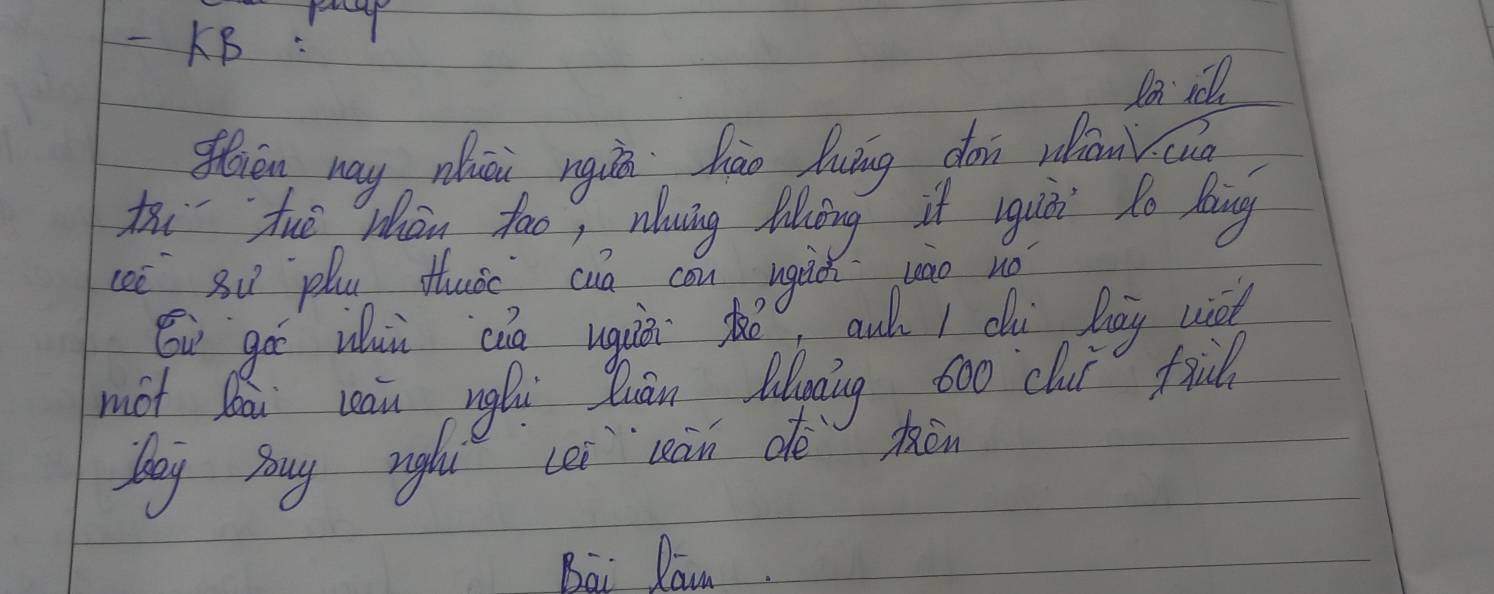 pháp
- KB :
lợi ích
Hiện nay nhiều người hào hứng đón nhận của
trí tuệ nhân tạo, nhưng không ít người lo lắng
về sự phụ thuộc của con người vào nó
Từ góc nhìn của người trẻ, anh / chị hãy viết
một bài văn nghị luận khoảng 600 chữ trình
bày suy nghĩ về vấn đề trên
Bài làm .